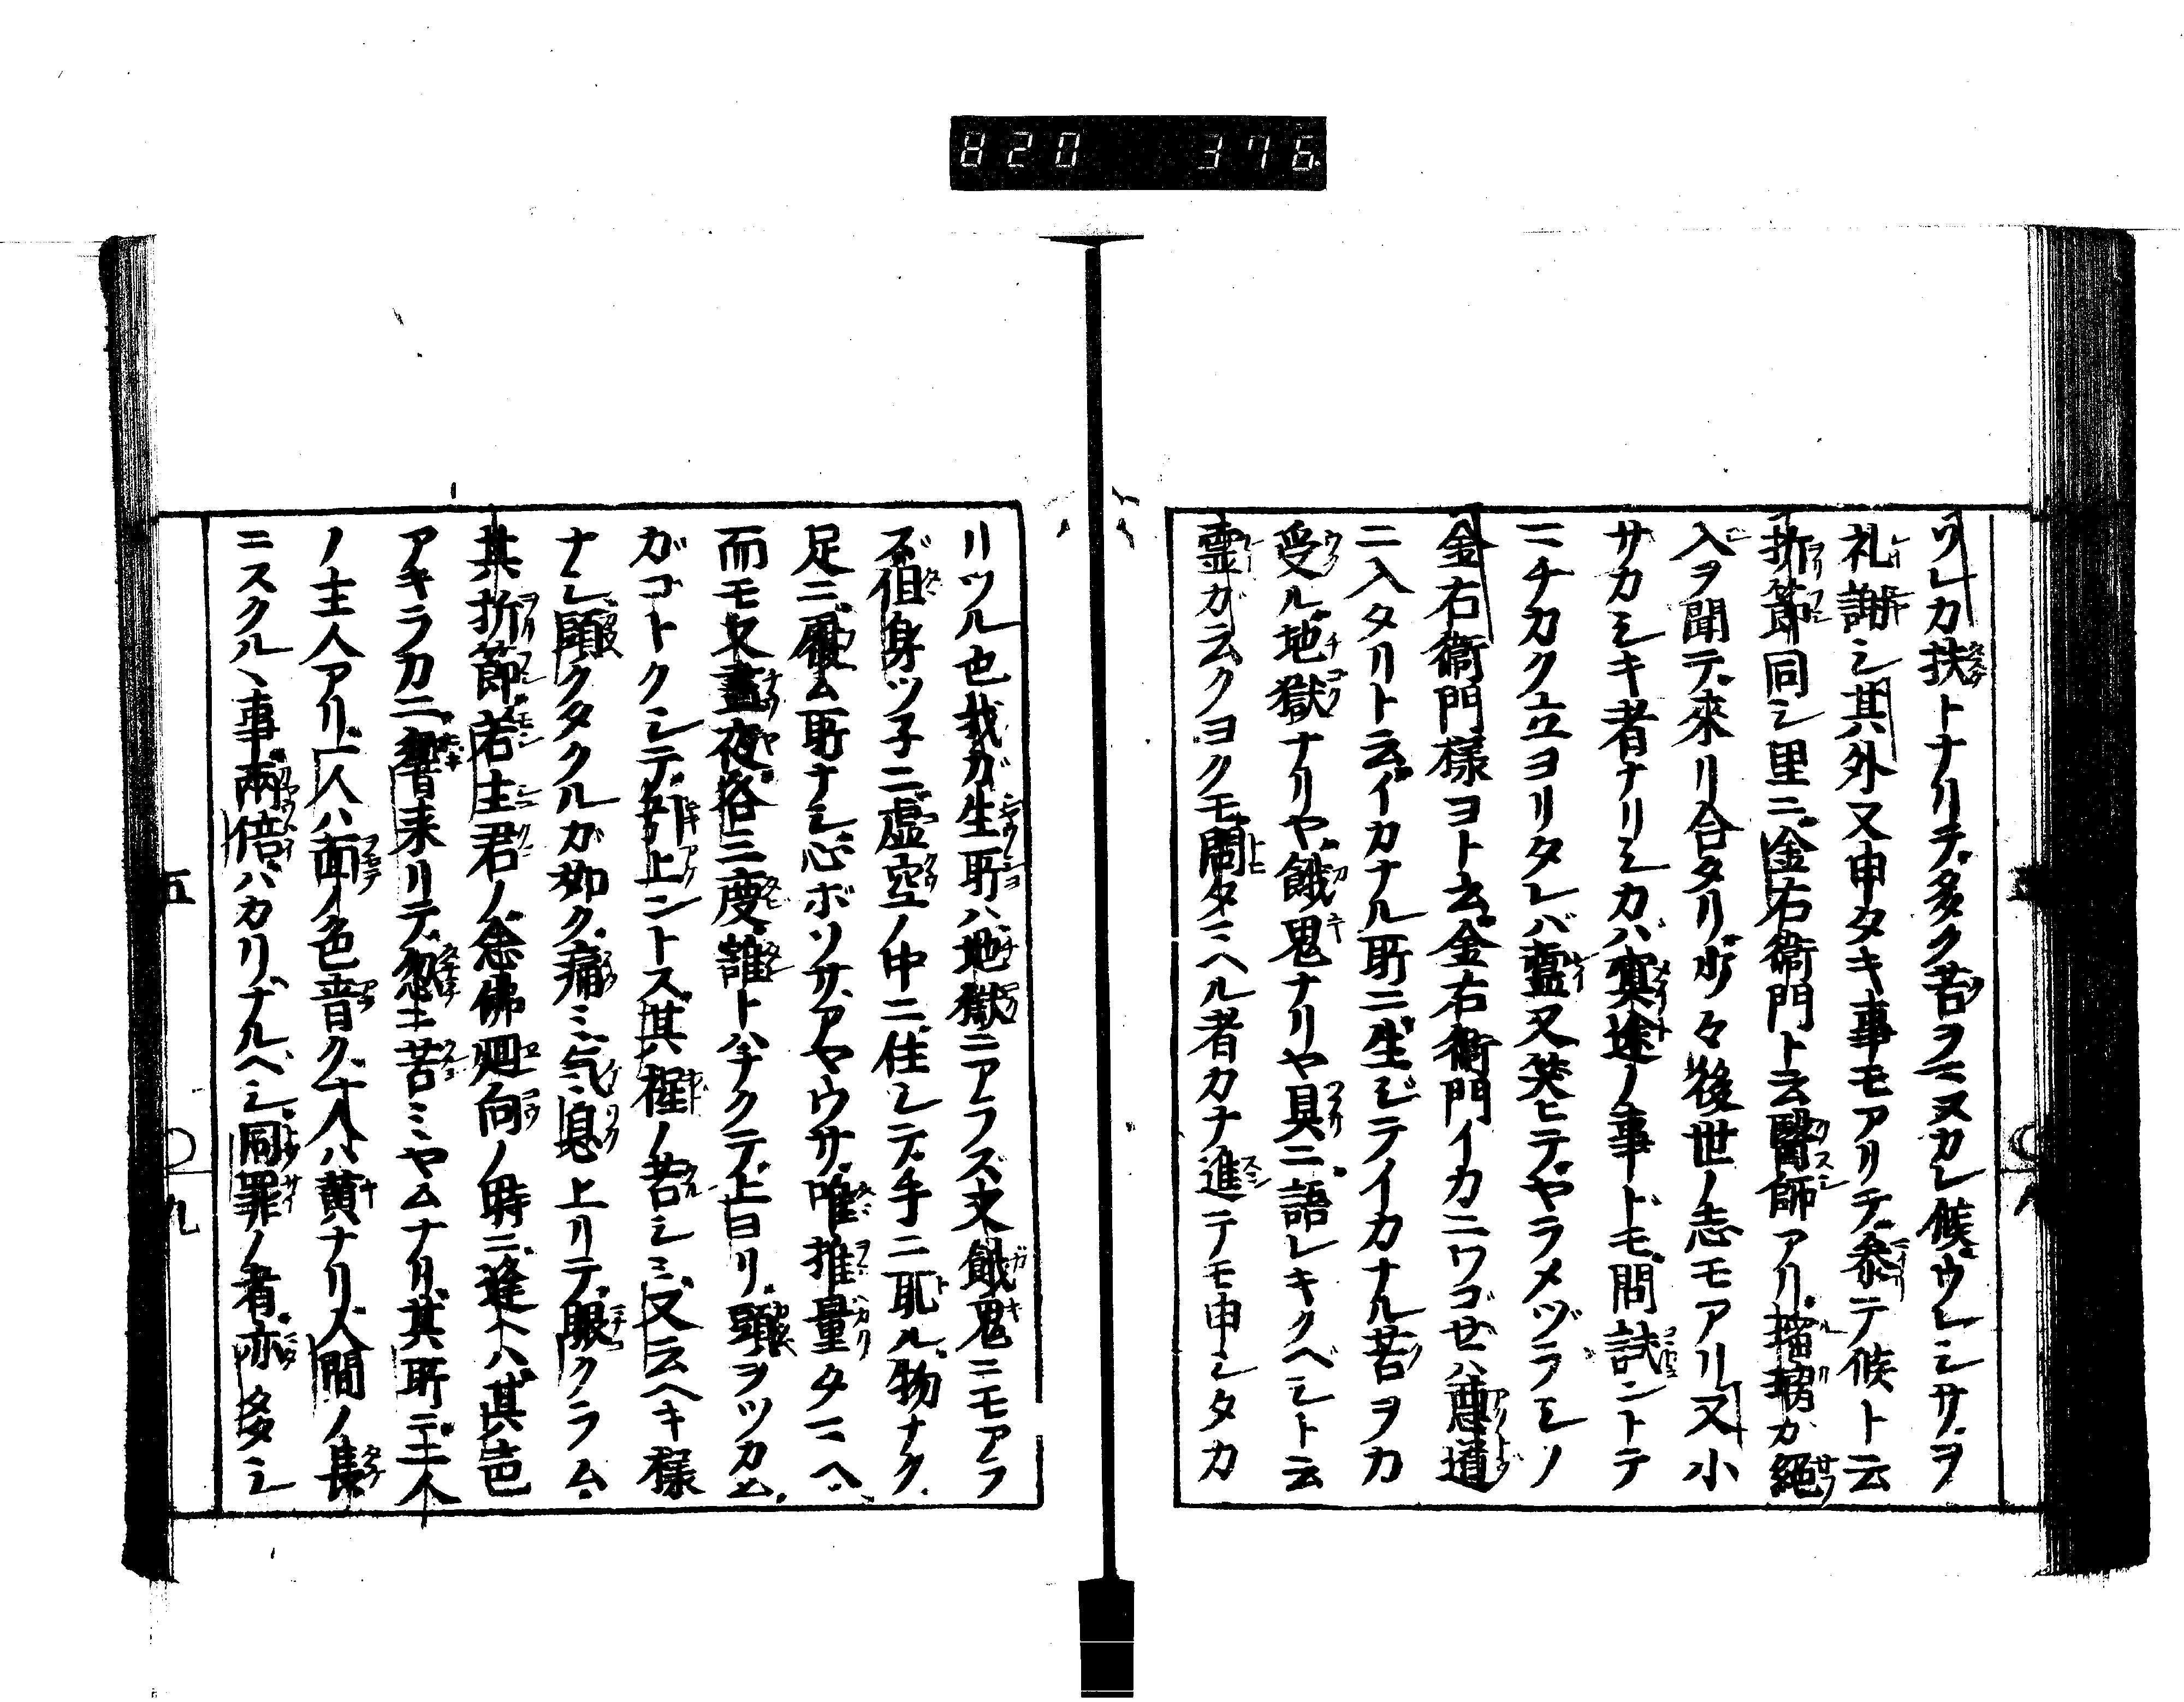 820 376
ソレカ扶トナリテ多ク苦ヲマヌカレ候ウレシサヲ
礼謝シ其外又申タキ事モアリテ参テ候ト云
折節同シ里ニ金右衛門ト云醫師アリ璠㻞カ縄
入ヲ聞テ來リ合タリ少々後世ノ志モアリ又小
サカシキ者ナリシカバ冥途ノ事ドモ問試ントテ
マチカク立ヨリタレバ霊又笑ヒテヤラメヅラシノ
金右衛門様ヨト云金右衛門イカニワゴゼハ悪道
ニ入タリト云イカナル所ニ生ジテイカナル苦ヲカ
受ル地獄ナリヤ餓鬼ナリヤ具ニ語レキクベシト云
霊カ云クヨクモ問タマヘル者カナ進テモ申シタカ
リツル也我ガ生所ハ地獄ニアラズ又餓鬼ニモアラ
ズ但身ツ子ニ虚空ノ中ニ住シテ手ニ取ル物ナク
足ニ履ム所ナシ心ボソサアヤウサ唯推量タマヘ
而モ又晝夜各三度誰トハナクテ上ヨリ頭ヲツカム
ガゴトクシテ引上ントス其程ノ苦シミ又云ヘキ様
ナシ頭クタクルガ如ク痛ミ気息上リテ眼クラム
其折節若主君ノ念佛廻向ノ時ニ逢ヘハ其色
アキラカニ響来リテ忽ニ苦ミヤムナリ其所ニ二人
ノ主人アリ一人ハ面ノ色青ク一人ハ黄ナリ人間ノ長
ニスクルヽ事兩倍バカリナルヘシ同罪ノ者亦多シ
五
九